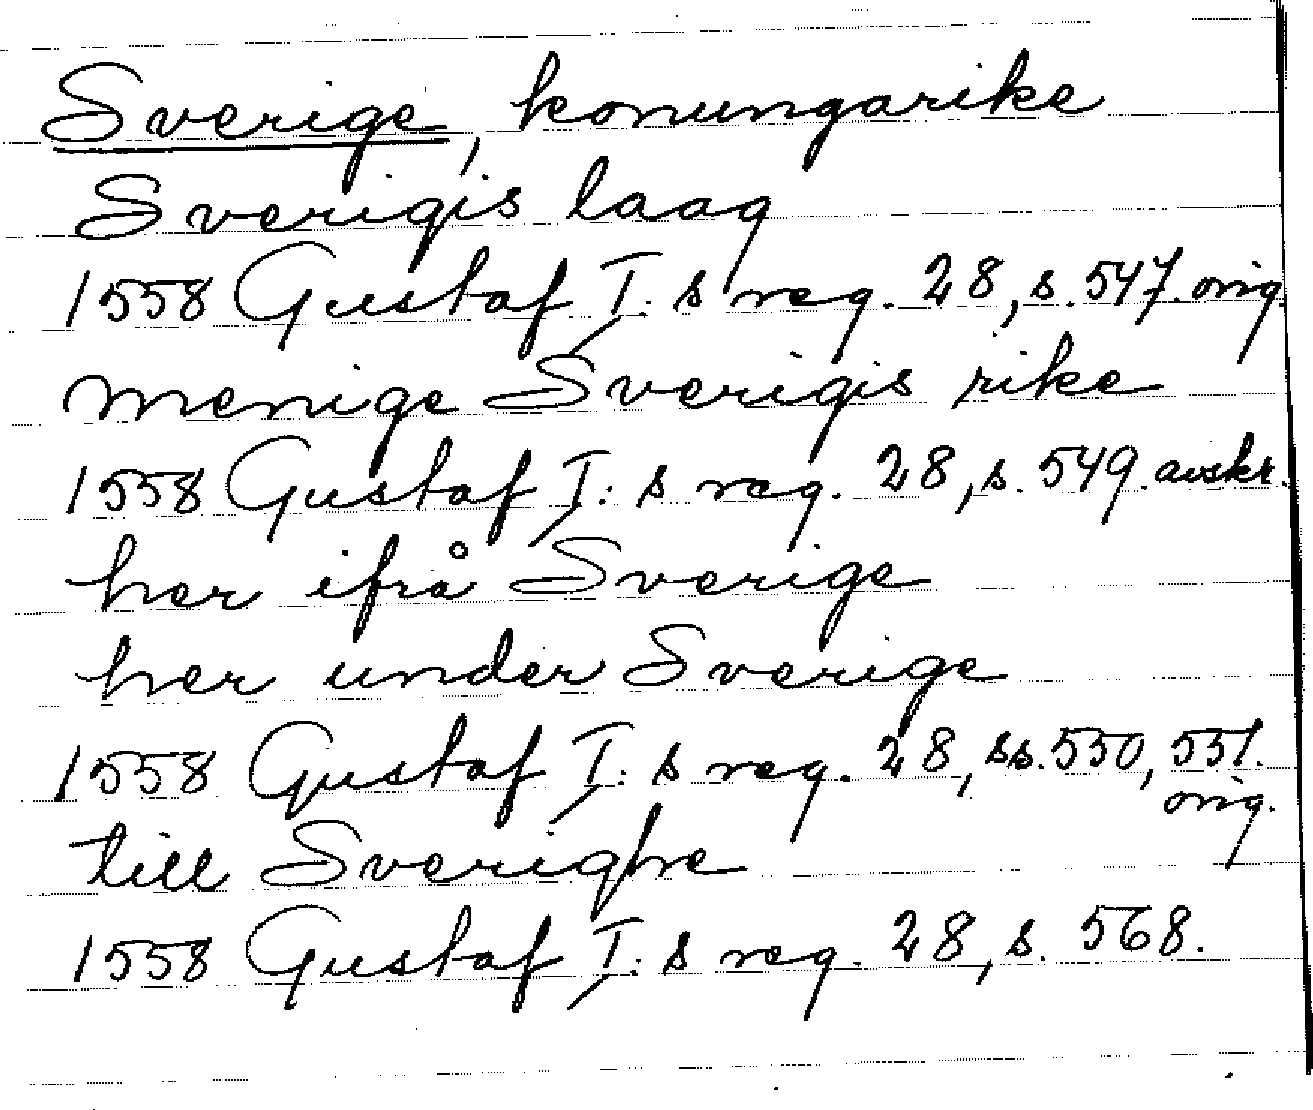 Sverige, konungarike
Sverigis laag
1558 Gustaf I:s reg. 28, s. 547. orig.
menige Sverigis rike
1558 Gustaf I:s reg. 28, s. 549. avskr.
her ifrå Sverige
her under Sverige
1558 Gustaf I:s reg. 28, ss. 550, 551.
orig.
till Sverighe
1558 Gustaf I:s reg. 28, s. 568.